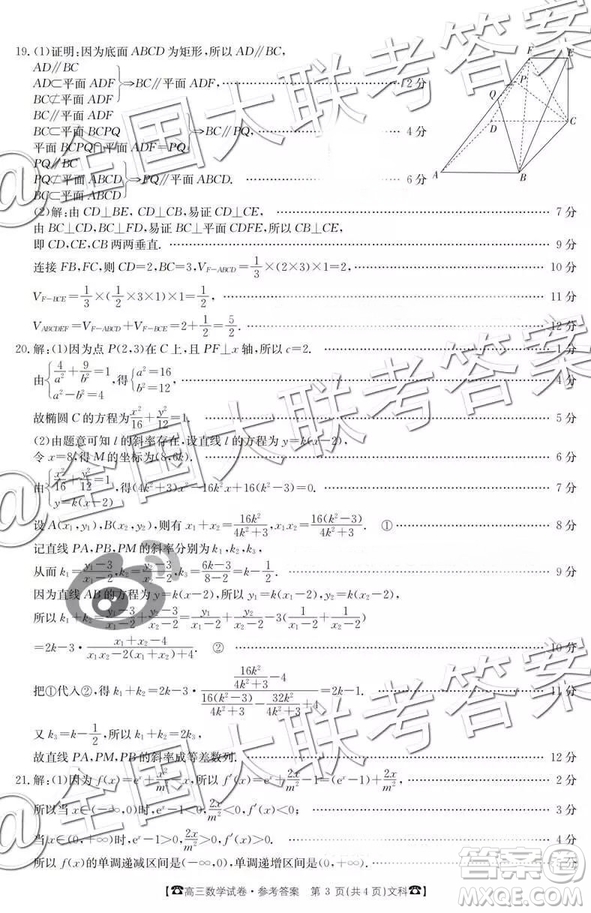 19. (1)证明:因为底面 ABCD 为矩形,所以 AD∥BC,
AD∥BC
AD⊂平面 ADF }⇒BC∥平面 ADF …… 2 分
BC⊄平面 ADF
BC⊂平面 BCPQ }⇒BC∥PQ …… 4 分
平面 BCPQ∩平面 ADF=PQ
PQ∥BC
PQ⊄平面 ABCD }⇒PQ∥平面 ABCD. …… 6 分
BC⊂平面 ABCD
F E P Q D C A B
(2)解:由 CD⊥BE, CD⊥CB,易证 CD⊥CF, …… 7 分
由 BC⊥CD,BC⊥FD,易证 BC⊥平面 CDFE,所以 CB⊥CF,
即 CD,CF,CB 两两垂直. …… 9 分
连接 FB,FC,则 CD=2,BC=3,V_{F-ABCD}=1/3×(2×3)×1=2, …… 10 分
V_{F-BCE}=1/3×(1/2×3×1)×1=1/2, …… 11 分
V_{ABCDEF}=V_{F-ABCD}+V_{F-BCE}=2+1/2=5/2. …… 12 分
20. 解:(1)因为点 P(2,3)在 C 上,且 PF⊥x 轴,所以 c=2. …… 1 分
由{4/a²+9/b²=1, a²-b²=4, 得{a²=16, b²=12, …… 4 分
故椭圆 C 的方程为 x²/16+y²/12=1. …… 5 分
(2)由题意可知 l 的斜率存在,设直线 l 的方程为 y=k(x-2),
令 x=8,得 M 的坐标为(8,6k). …… 6 分
由{x²/16+y²/12=1, y=k(x-2) 得(4k²+3)x²-16k²x+16(k²-3)=0. …… 7 分
设 A(x₁,y₁),B(x₂,y₂),则有 x₁+x₂=16k²/(4k²+3),x₁x₂=16(k²-3)/(4k²+3). ① …… 8 分
记直线 PA,PB,PM 的斜率分别为 k₁,k₂,k₃,
从而 k₁=(y₁-3)/(x₁-2),k₂=(y₂-3)/(x₂-2),k₃=(6k-3)/(8-2)=k-1/2. …… 9 分
因为直线 AB 的方程为 y=k(x-2),所以 y₁=k(x₁-2),y₂=k(x₂-2),
所以 k₁+k₂=(y₁-3)/(x₁-2)+(y₂-3)/(x₂-2)=y₁/(x₁-2)+y₂/(x₂-2)-3(1/(x₁-2)+1/(x₂-2))
=2k-3·(x₁+x₂-4)/(x₁x₂-2(x₁+x₂)+4). ② …… 10 分
把①代入②,得 k₁+k₂=2k-3·(16k²/(4k²+3)-4)/(16(k²-3)/(4k²+3)-32k²/(4k²+3)+4)=2k-1. …… 11 分
又 k₃=k-1/2,所以 k₁+k₂=2k₃,
故直线 PA,PM,PB 的斜率成等差数列. …… 12 分
21. 解:(1)因为 f(x)=eˣ+x²/m²-x,所以 f′(x)=eˣ+2x/m²-1=(eˣ-1)+2x/m². …… 2 分
所以当 x∈(-∞,0)时,eˣ-1<0,2x/m²<0,f′(x)<0; …… 3 分
当 x∈(0,+∞)时,eˣ-1>0,2x/m²>0,f′(x)>0. …… 4 分
所以 f(x)的单调递减区间是(-∞,0),单调递增区间是(0,+∞). …… 5 分
☎高三数学试卷·参考答案 第 3 页(共 4 页)文科☎
@全国大联考答案
@全国大联考答案
@全国大联考答案